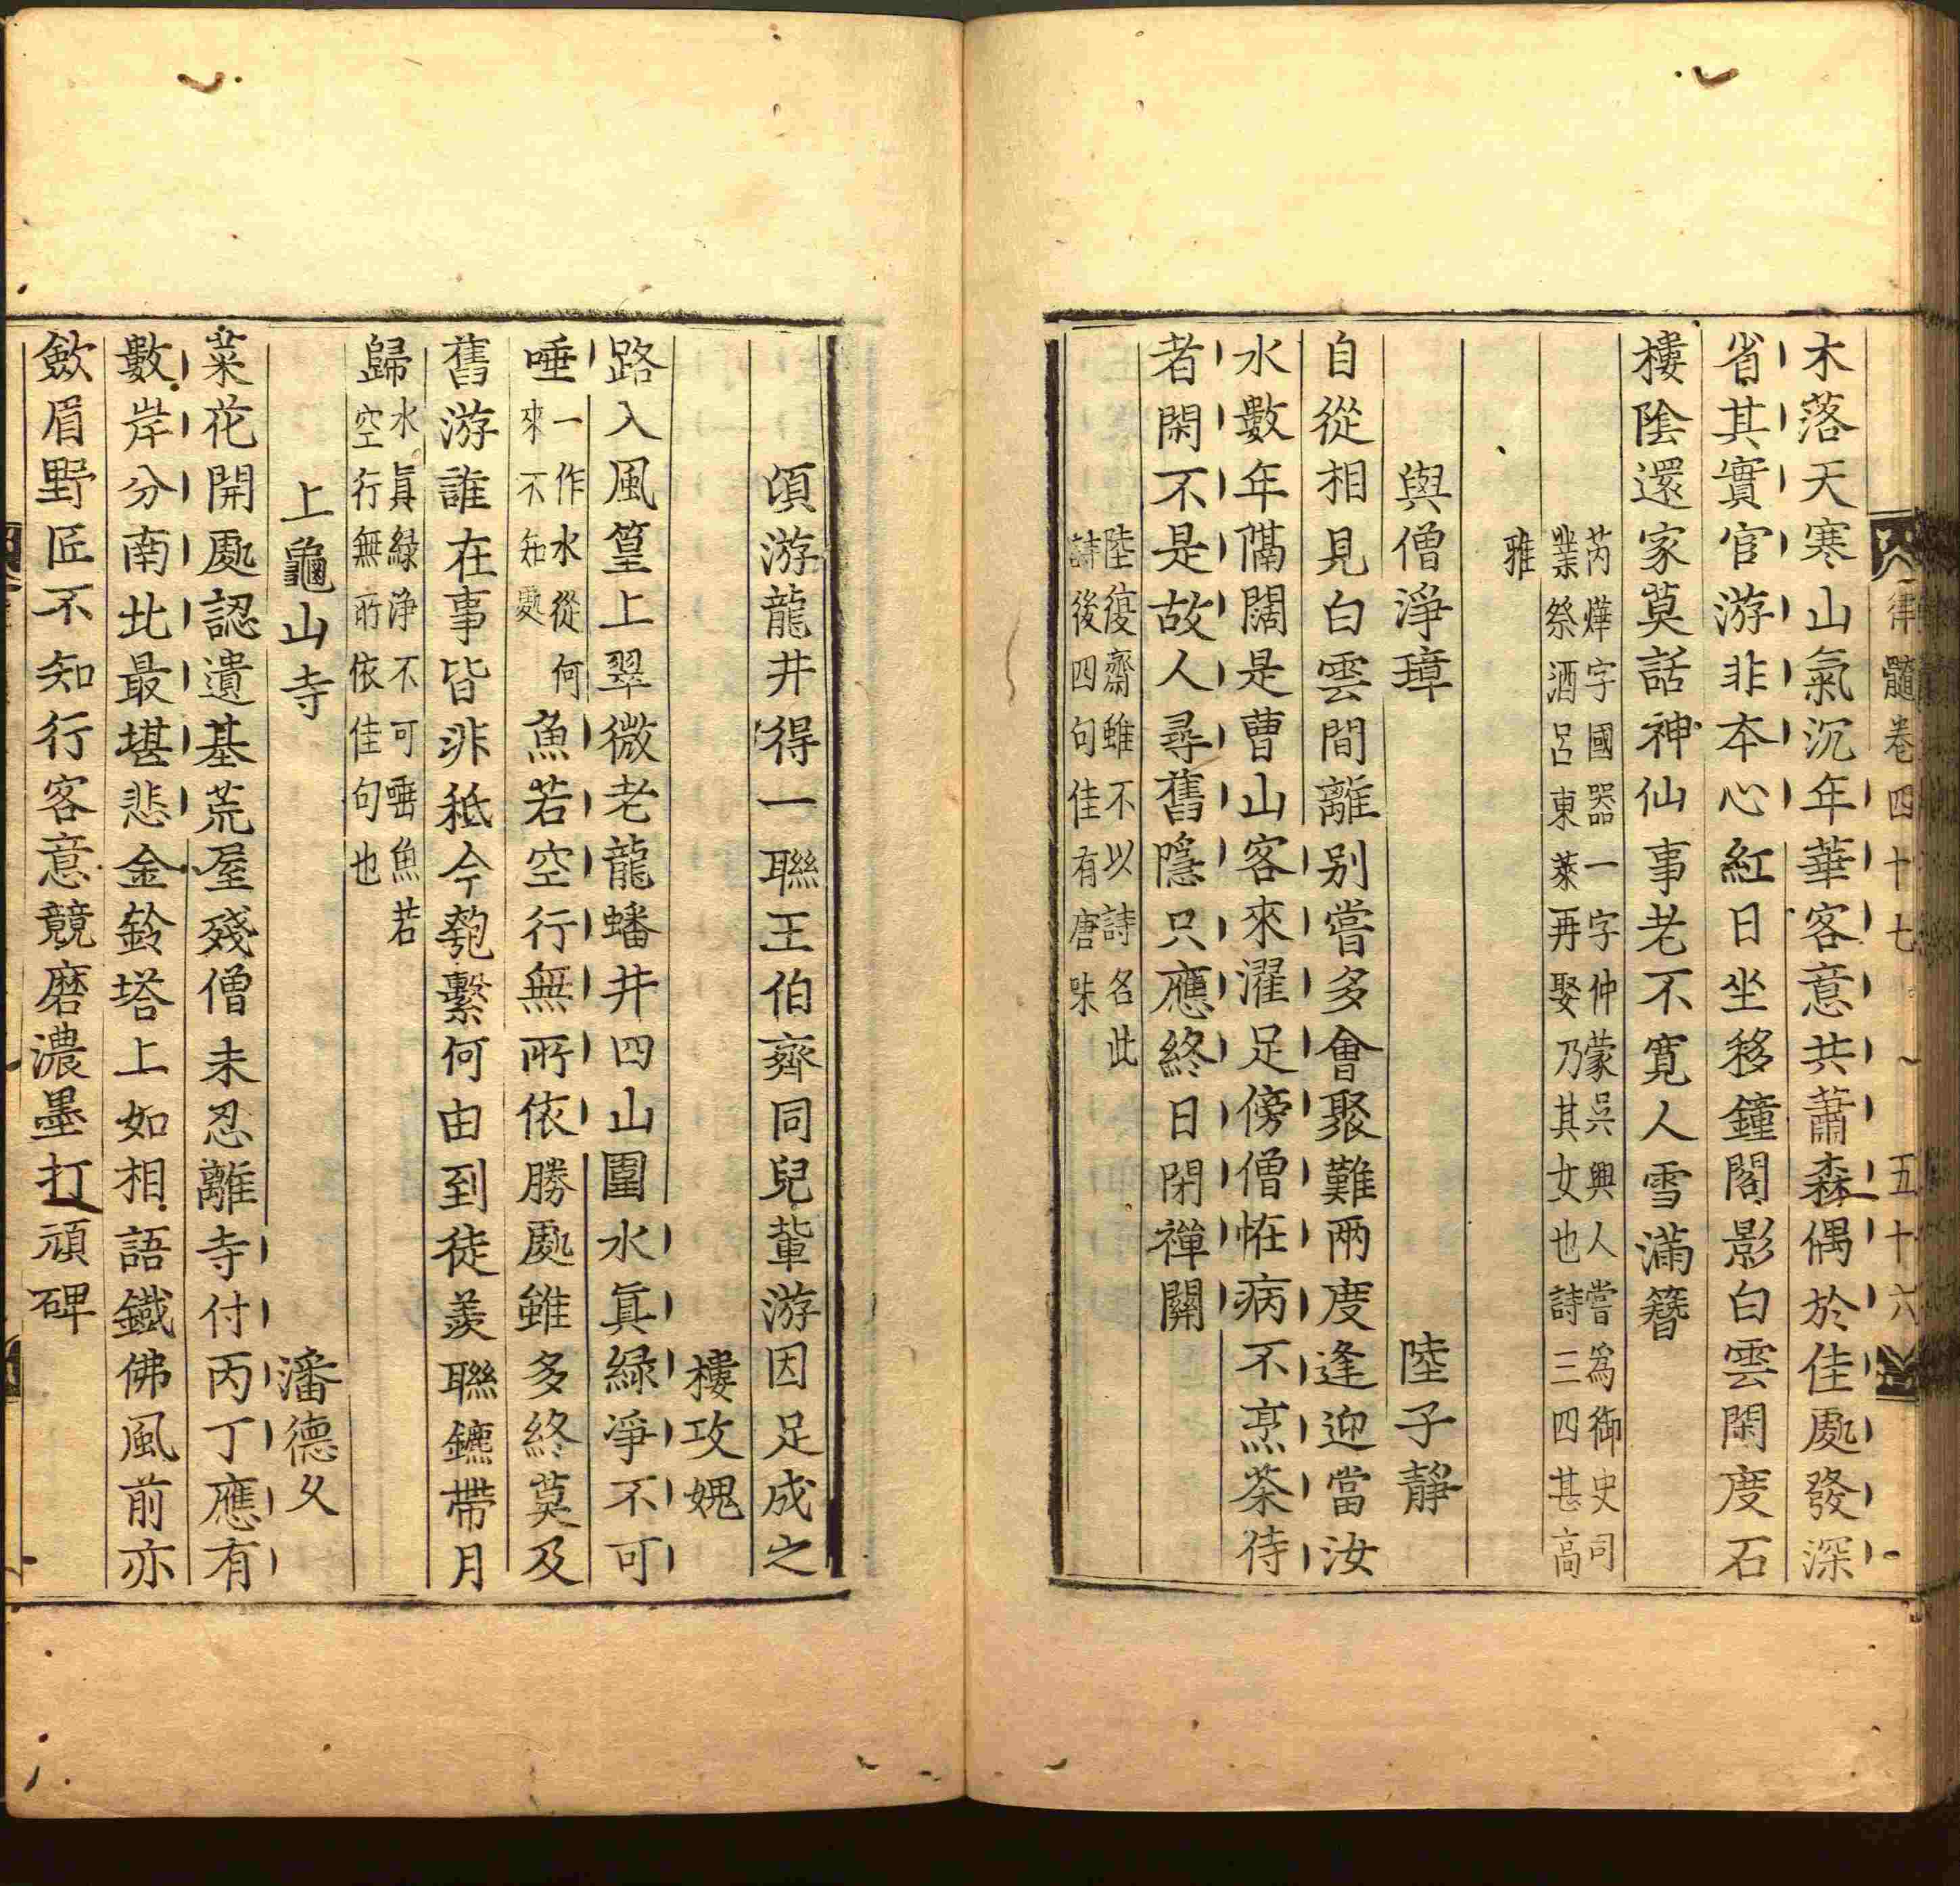 律髓卷四十七 五十六
木落天寒山氣沉年華客意共蕭森偶於佳處發深
省其實官游非本心紅日坐移鐘閣影白雲閑度石
樓陰還家莫話神仙事老不寬人雪滿簪
芮燁字國器一字仲蒙吳興人嘗為御史司
業祭酒呂東萊再娶乃其女也詩三四甚高
雅
與僧淨璋 陸子靜
自從相見白雲間離别嘗多會聚難兩度逢迎當汝
水數年隔闊是曹山客來濯足傍僧恠病不烹茶待
者閑不是故人尋舊隱只應終日閉禪關
陸復齋雖不以詩名此
詩後四句佳有唐味
頃游龍井得一聯王伯齊同兒輩游因足成之
樓攻媿
路入風篁上翠微老龍蟠井四山圍水眞緑凈不可
唾一作水從何來不知處魚若空行無所依勝處雖多終莫及
舊游誰在事皆非秪今匏繫何由到徒羨聯鑣帶月
歸水眞緑淨不可唾魚若空行無所依佳句也
上龜山寺 潘德久
菜花開處認遺基荒屋殘僧未忍離寺付丙丁應有
數岸分南北最堪悲金鈴塔上如相語鐵佛風前亦
斂眉野匠不知行客意競磨濃墨打頑碑